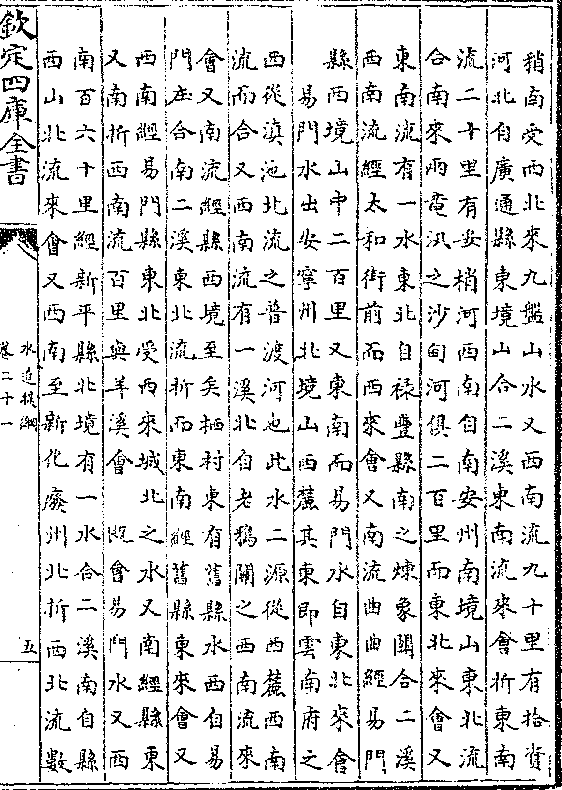 稍南受西北來九盤山水又西南流九十里有拾資
河北自廣通縣東境山合二溪東南流來會折東南
流二十里有妥梢河西南自南安州南境山東北流
合南來雨電汛之沙甸河俱二百里而東北來會又
東南流有一水東北自祿豐縣南之煉象關合二溪
西南流經太和街前而西來會又南流曲曲經易門
縣西境山中二百里又東南而易門水自東北來會
易門水出安寧州北境山西麓其東即雲南府之
西從滇池北流之普渡河也此水二源從西麓西南
流而合又西南流有一溪北自老鴉關之西南流來
會又南流經縣西境至矣栖村東有舊縣水西自易
門庄合南二溪東北流折而東南經舊縣東來會又
西南經易門縣東北受西來城北之水又南經縣東
又南折西南流百里與羊溪會 既會易門水又西
南百六十里經新平縣北境有一水合二溪南自縣
西山北流來會又西南至新化廢州北折西北流數
欽定四庫全書
水道提綱
卷二十一
五